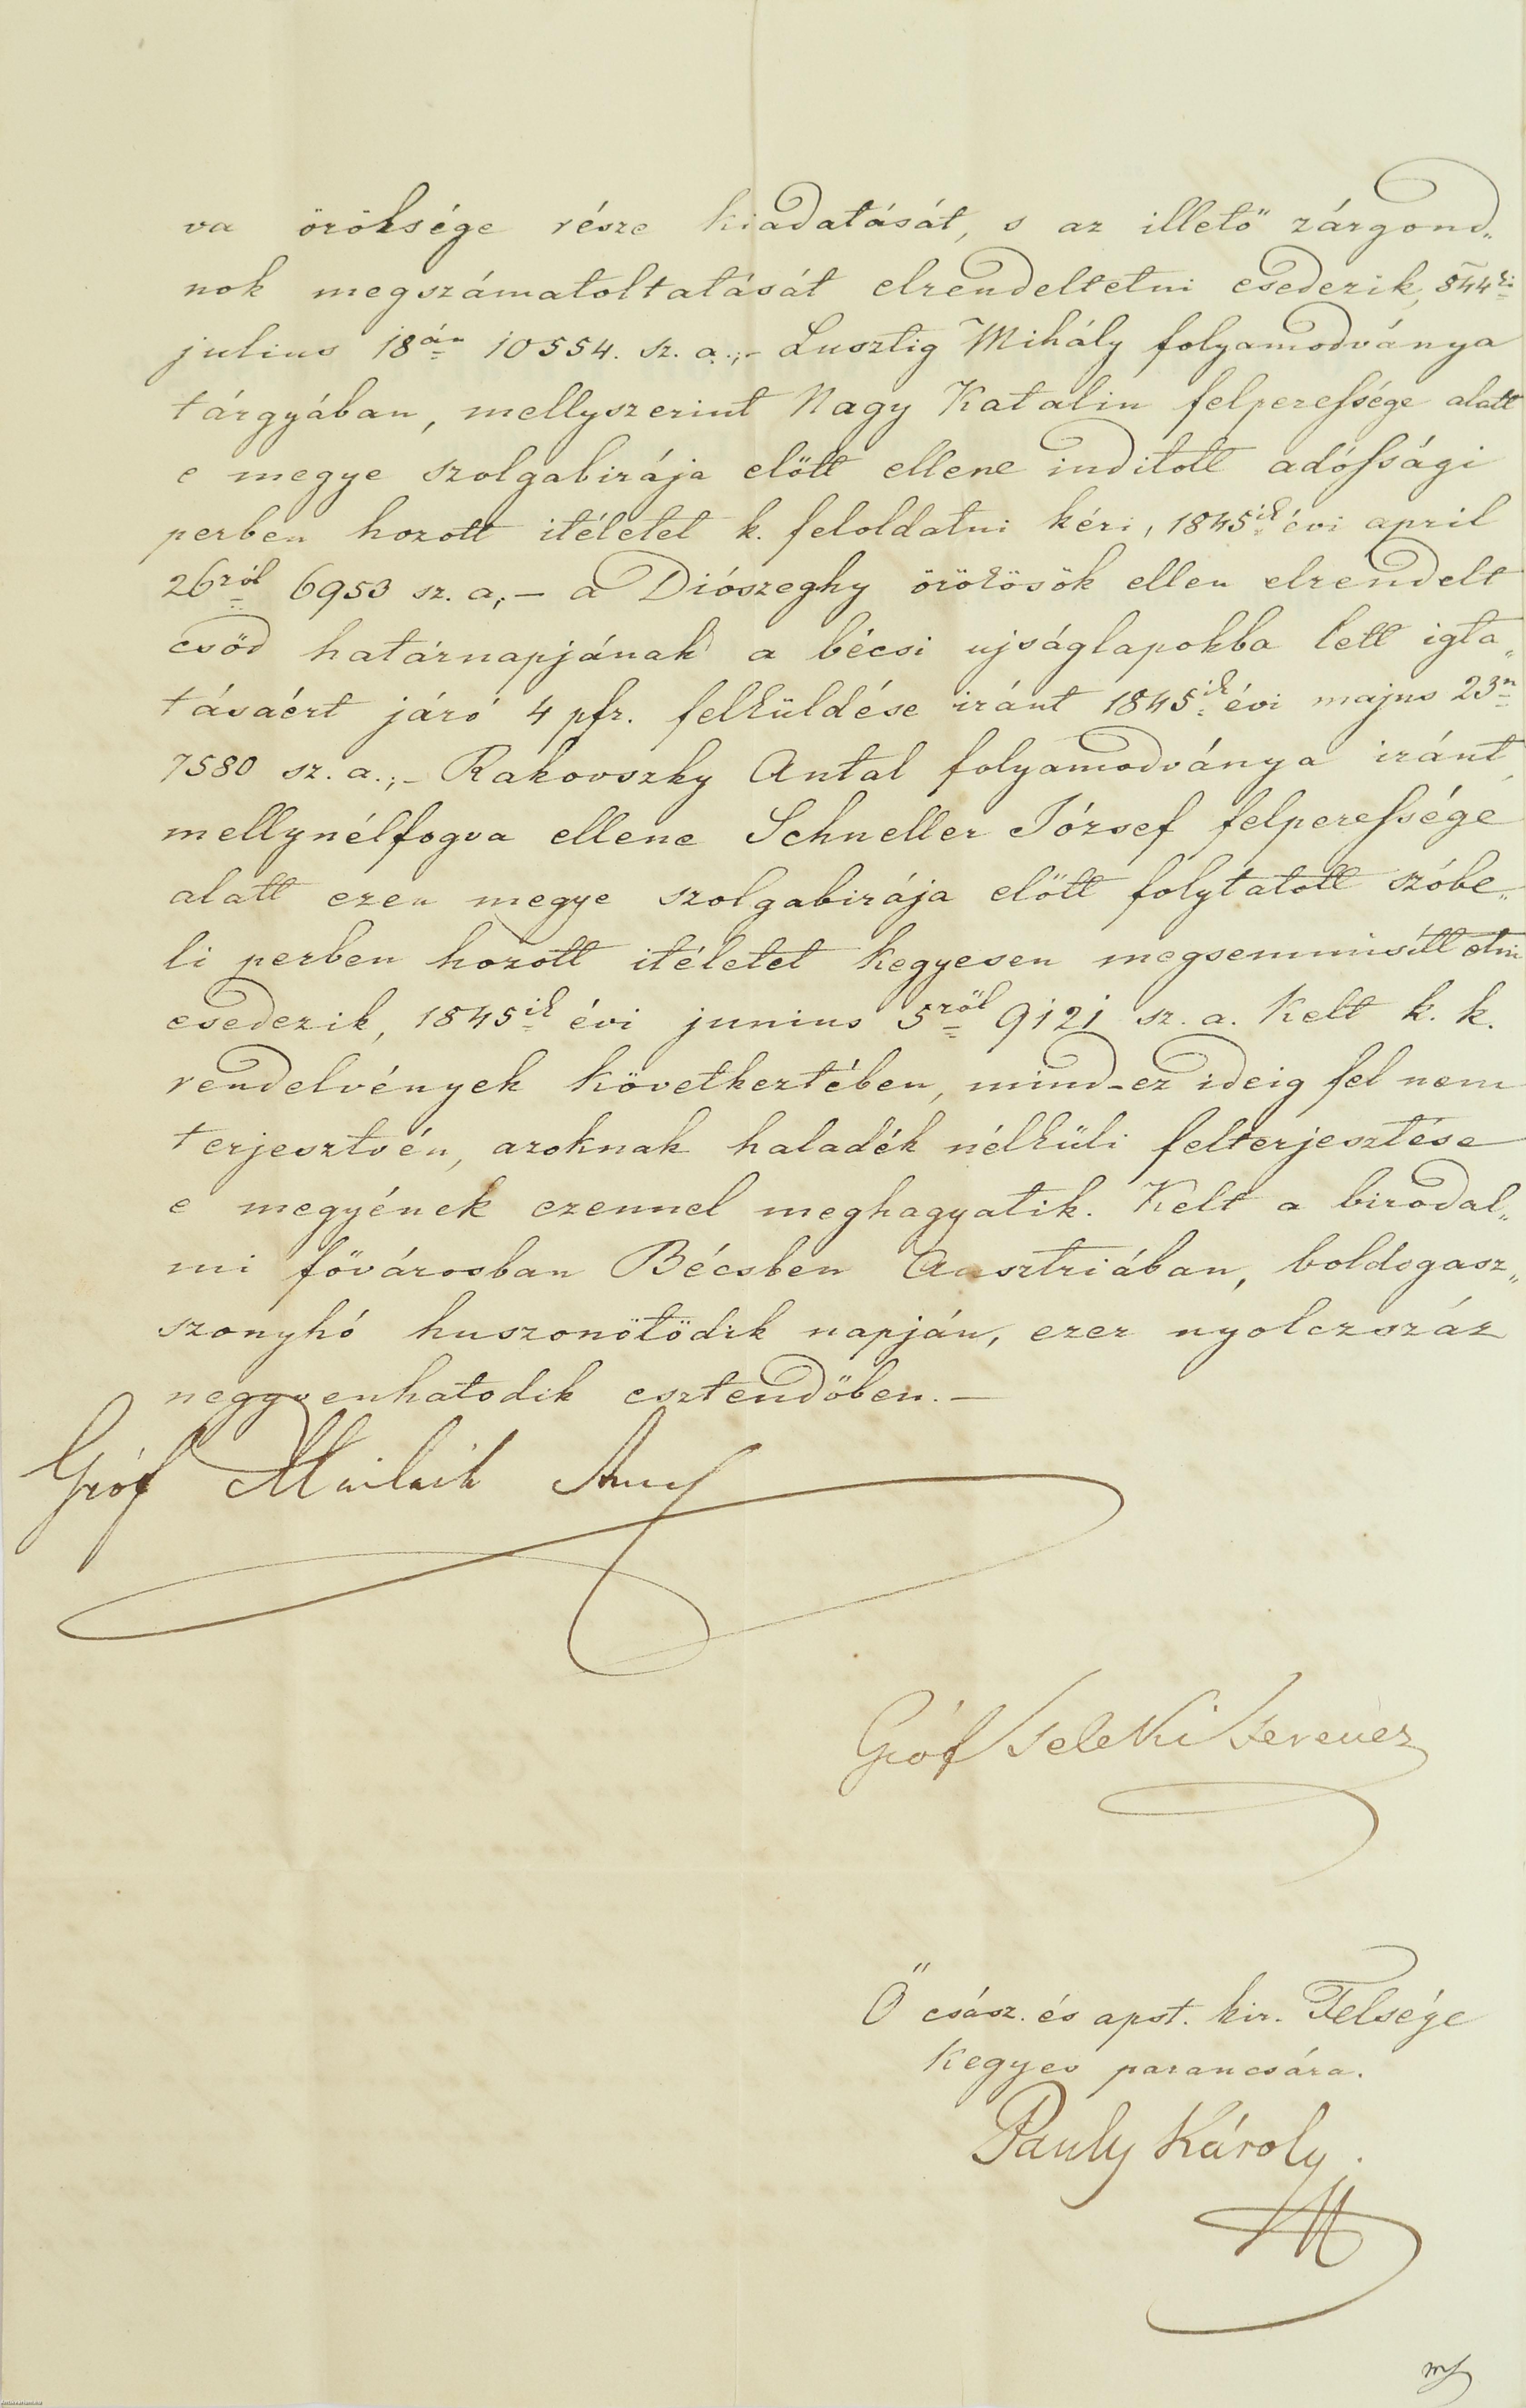 va öröksége része kiadatását, s az illető zárgond„
nok megszámatoltatását elrendeltetni esedezik, 844ki
julius 18án 10554. sz. a.;– Lusztig Mihály folyamodványa
tárgyában, mellyszerint Nagy Katalin felperessége alatt
e megye szolgabirája előtt ellene inditott adóssági
perben hozott itéletet k. feloldatni kéri, 1845ik évi april
26ról 6953 sz. a;– a Diószeghy örökösök ellen elrendelt
csőd határnapjának a bécsi ujságlapokba lett igta„
tásaért járó 4 pfr. felküldése iránt 1845ik évi majus 23n
7580 sz. a.;– Rakovszky Antal folyamodványa iránt,
mellynélfogva ellene Schneller József felperessége
alatt ezen megye szolgabirája előtt folytatott szóbe„
li perben hozott itéletet kegyesen megsemmisíttetni
esedezik, 1845ik évi junius 5ről 9121 sz. a. kelt k. k.
rendelvények következtében, mind-ez ideig fel nem
terjesztvén, azoknak haladék nélküli felterjesztése
e megyének ezennel meghagyatik. Kelt a birodal„
mi fővárosban Bécsben Ausztriában, boldogasz„
szonyhó huszonötödik napján, ezer nyolczszáz
negyvenhatodik esztendőben.–
Gróf Mailáth Antal
Gróf Teleki Ferencz
Ő csász. és apst. kir. Felsége
kegyes parancsára.
Pauly Károly.